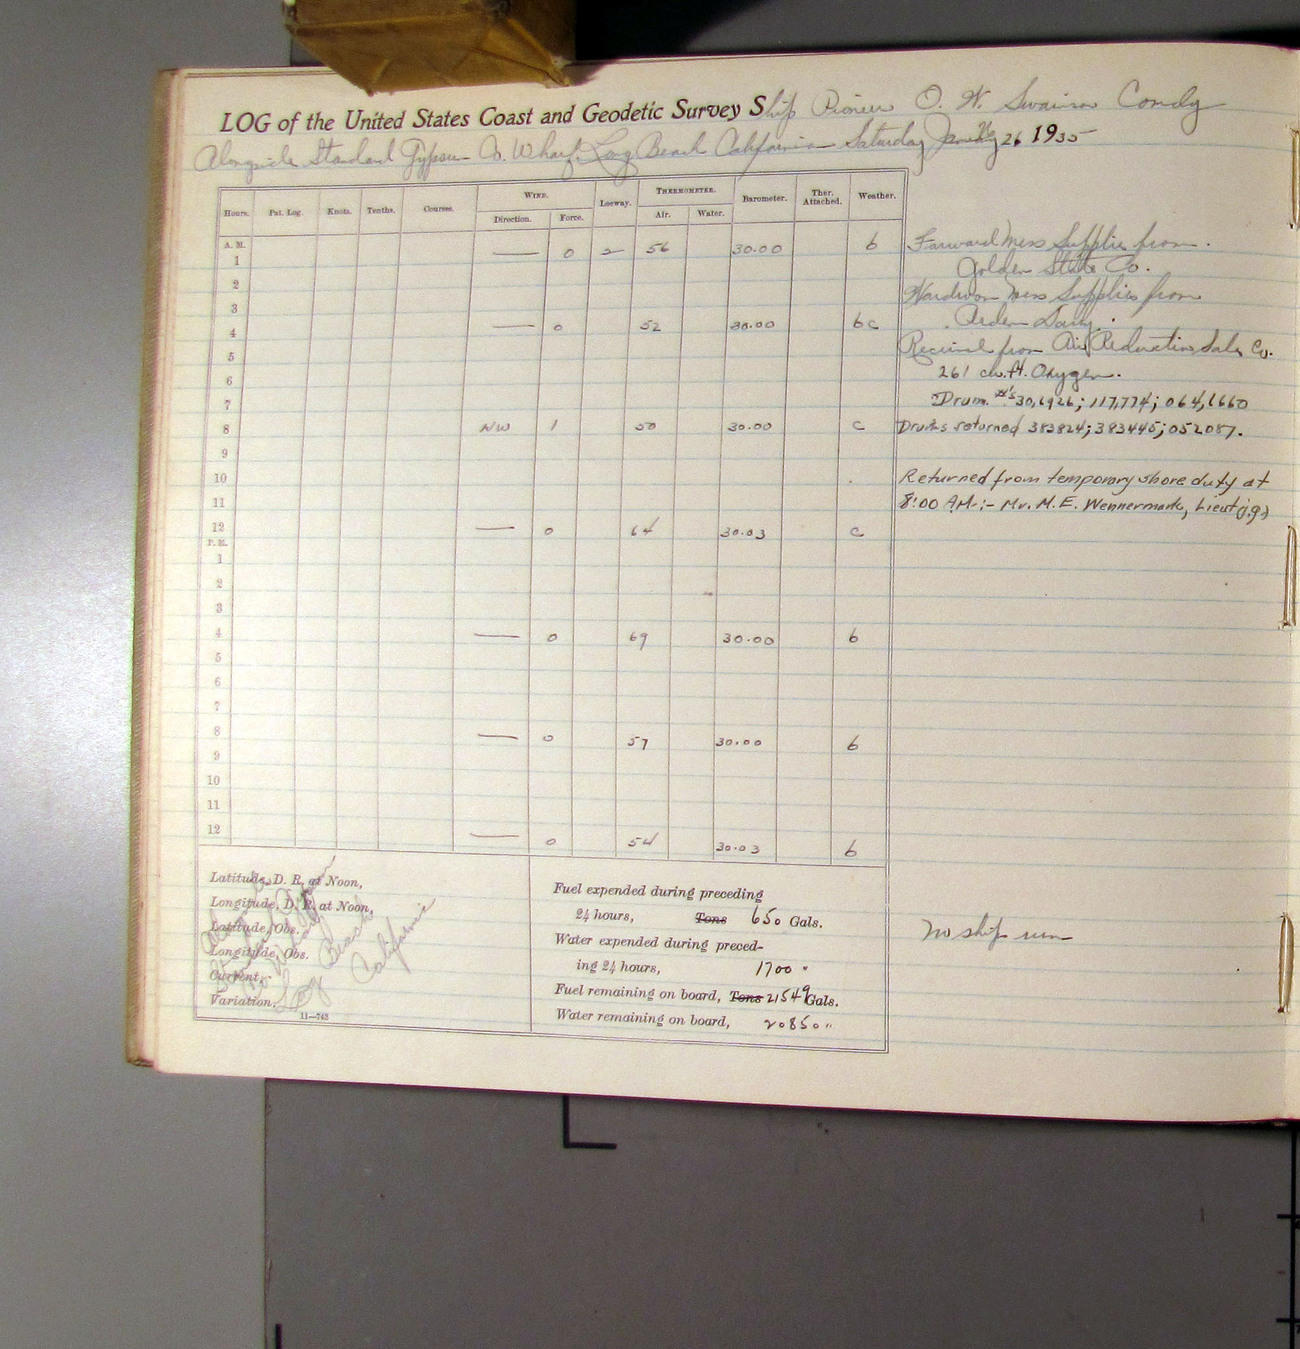 LOG of the United States Coast and Geodetic Survey Ship Pioneer O. W. Swainson Comdg
Alongside Standard Gypsum Co. Wharf, Long Beach California Saturday January 26 1935
Hours. Pat. Log. Knots. Tenths. Courses. WIND. Leeway. THERMOMETER. Barometer. Ther. Attached. Weather.
Direction. Force. Air. Water.
A. M.
1 — 0 2 56 30.00 b
2
3
4 — 0 52 30.00 bc
5
6
7
8 NW 1 50 30.00 c
9
10
11
12 — 0 64 30.03 c
P. M.
1
2
3
4 — 0 69 30.00 b
5
6
7
8 — 0 57 30.00 b
9
10
11
12 — 0 54 30.03 b
Forward Mess Supplies from
Golden State Co.
Wardroom Mess Supplies from
Arden Dairy.
Received from Air Reduction Sales Co.
261 cu. ft. Oxygen.
Drum #'s 30,6926; 117,774; 064,1660
Drums returned 383824; 383445; 052087.
Returned from temporary shore duty at
8:00 A.M.:- Mr. M. E. Wennermark, Lieut (j.g.)
Latitude, D. R. at Noon,
Longitude, D. R. at Noon,
Latitude, Obs.
Longitude, Obs.
Current,
Variation,
11—743
Long Beach
California
Fuel expended during preceding
24 hours, Tons 650 Gals.
Water expended during preced-
ing 24 hours, 1700 "
Fuel remaining on board, Tons 21549 Gals.
Water remaining on board, 20850 "
No ship run